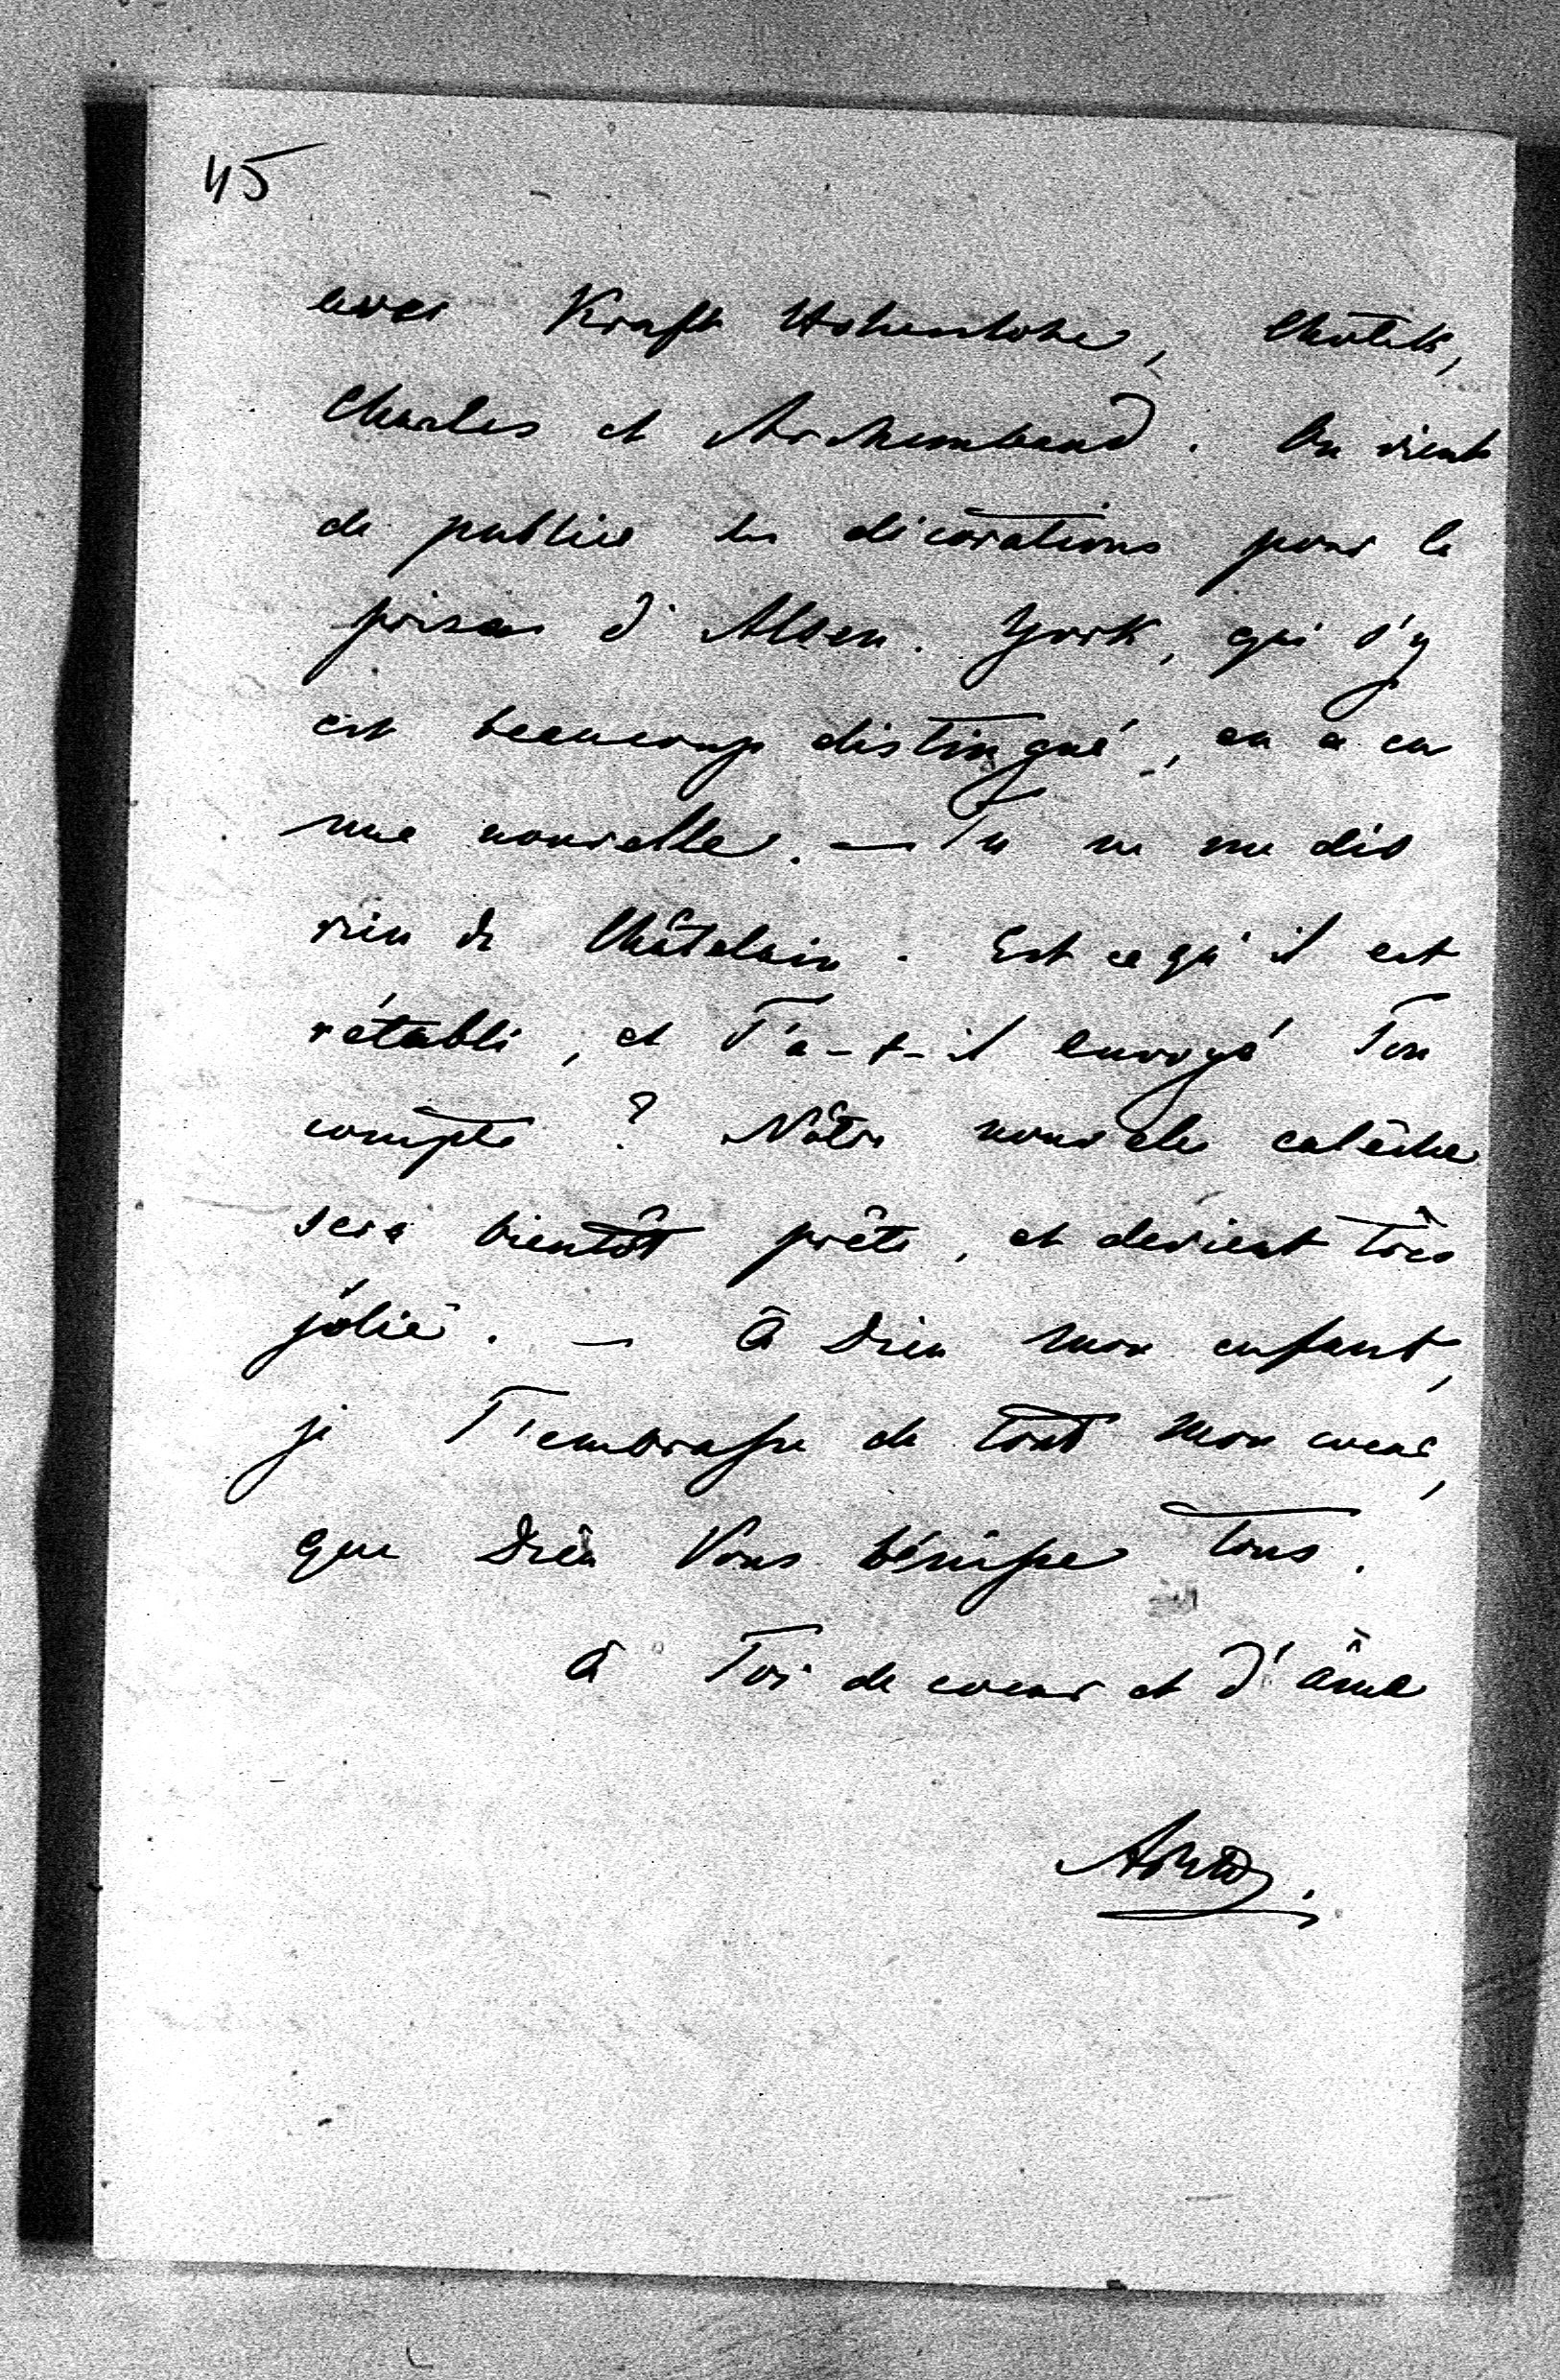 45
avec Kraft Hohenlohe,
Charles et Archembaud. On vient
de publier les décorations pour la
prise d'Alsen. York, qui s'y
est beaucoup distingué, en a eu
une nouvelle. — Tu ne me dis
rien de Châtelain. Est ce qu'il est
rétabli, et T'a-t-il envoyé Ton
compte ? Nôtre nouvelle calèche
sera bientôt prête, et devient très
jolie. — à Dieu mon enfant,
je T'embrasse de tout mon cœur,
que Dieu Vous bénisse tous.
à Toi de cœur et d'âme